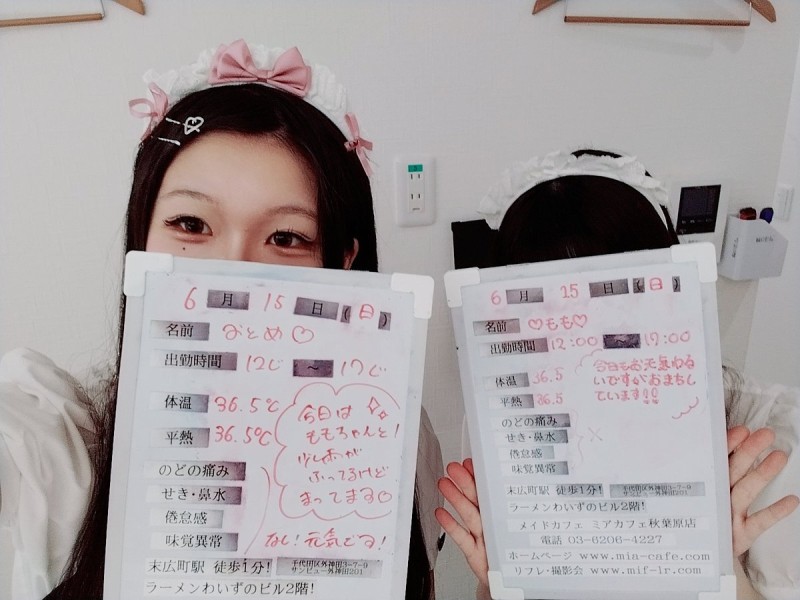 6月 15日(日)
名前 おとめ♡
出勤時間 12じ ~ 17じ
体温 36.5℃
平熱 36.5℃
のどの痛み
せき・鼻水
倦怠感
味覚異常
なし!元気です!
今日は
ももちゃんと!
少しあめが
ふってるけど
まってます♡
末広町駅 徒歩1分! 千代田区外神田3-7-9
サンビュー外神田201
ラーメンわいずのビル2階!
6月 15日(日)
名前 ♡もも♡
出勤時間 12:00 ~ 17:00
体温 36.5
平熱 36.5
のどの痛み
せき・鼻水
倦怠感
味覚異常
今日もお天気わる
いですがおまちし
ています!!
末広町駅 徒歩1分! 千代田区外神田3-7-9
サンビュー外神田201
ラーメンわいずのビル2階!
メイドカフェ ミアカフェ秋葉原店
電話 03-6206-4227
ホームページ www.mia-cafe.com
リフレ・撮影会 www.mif-lr.com